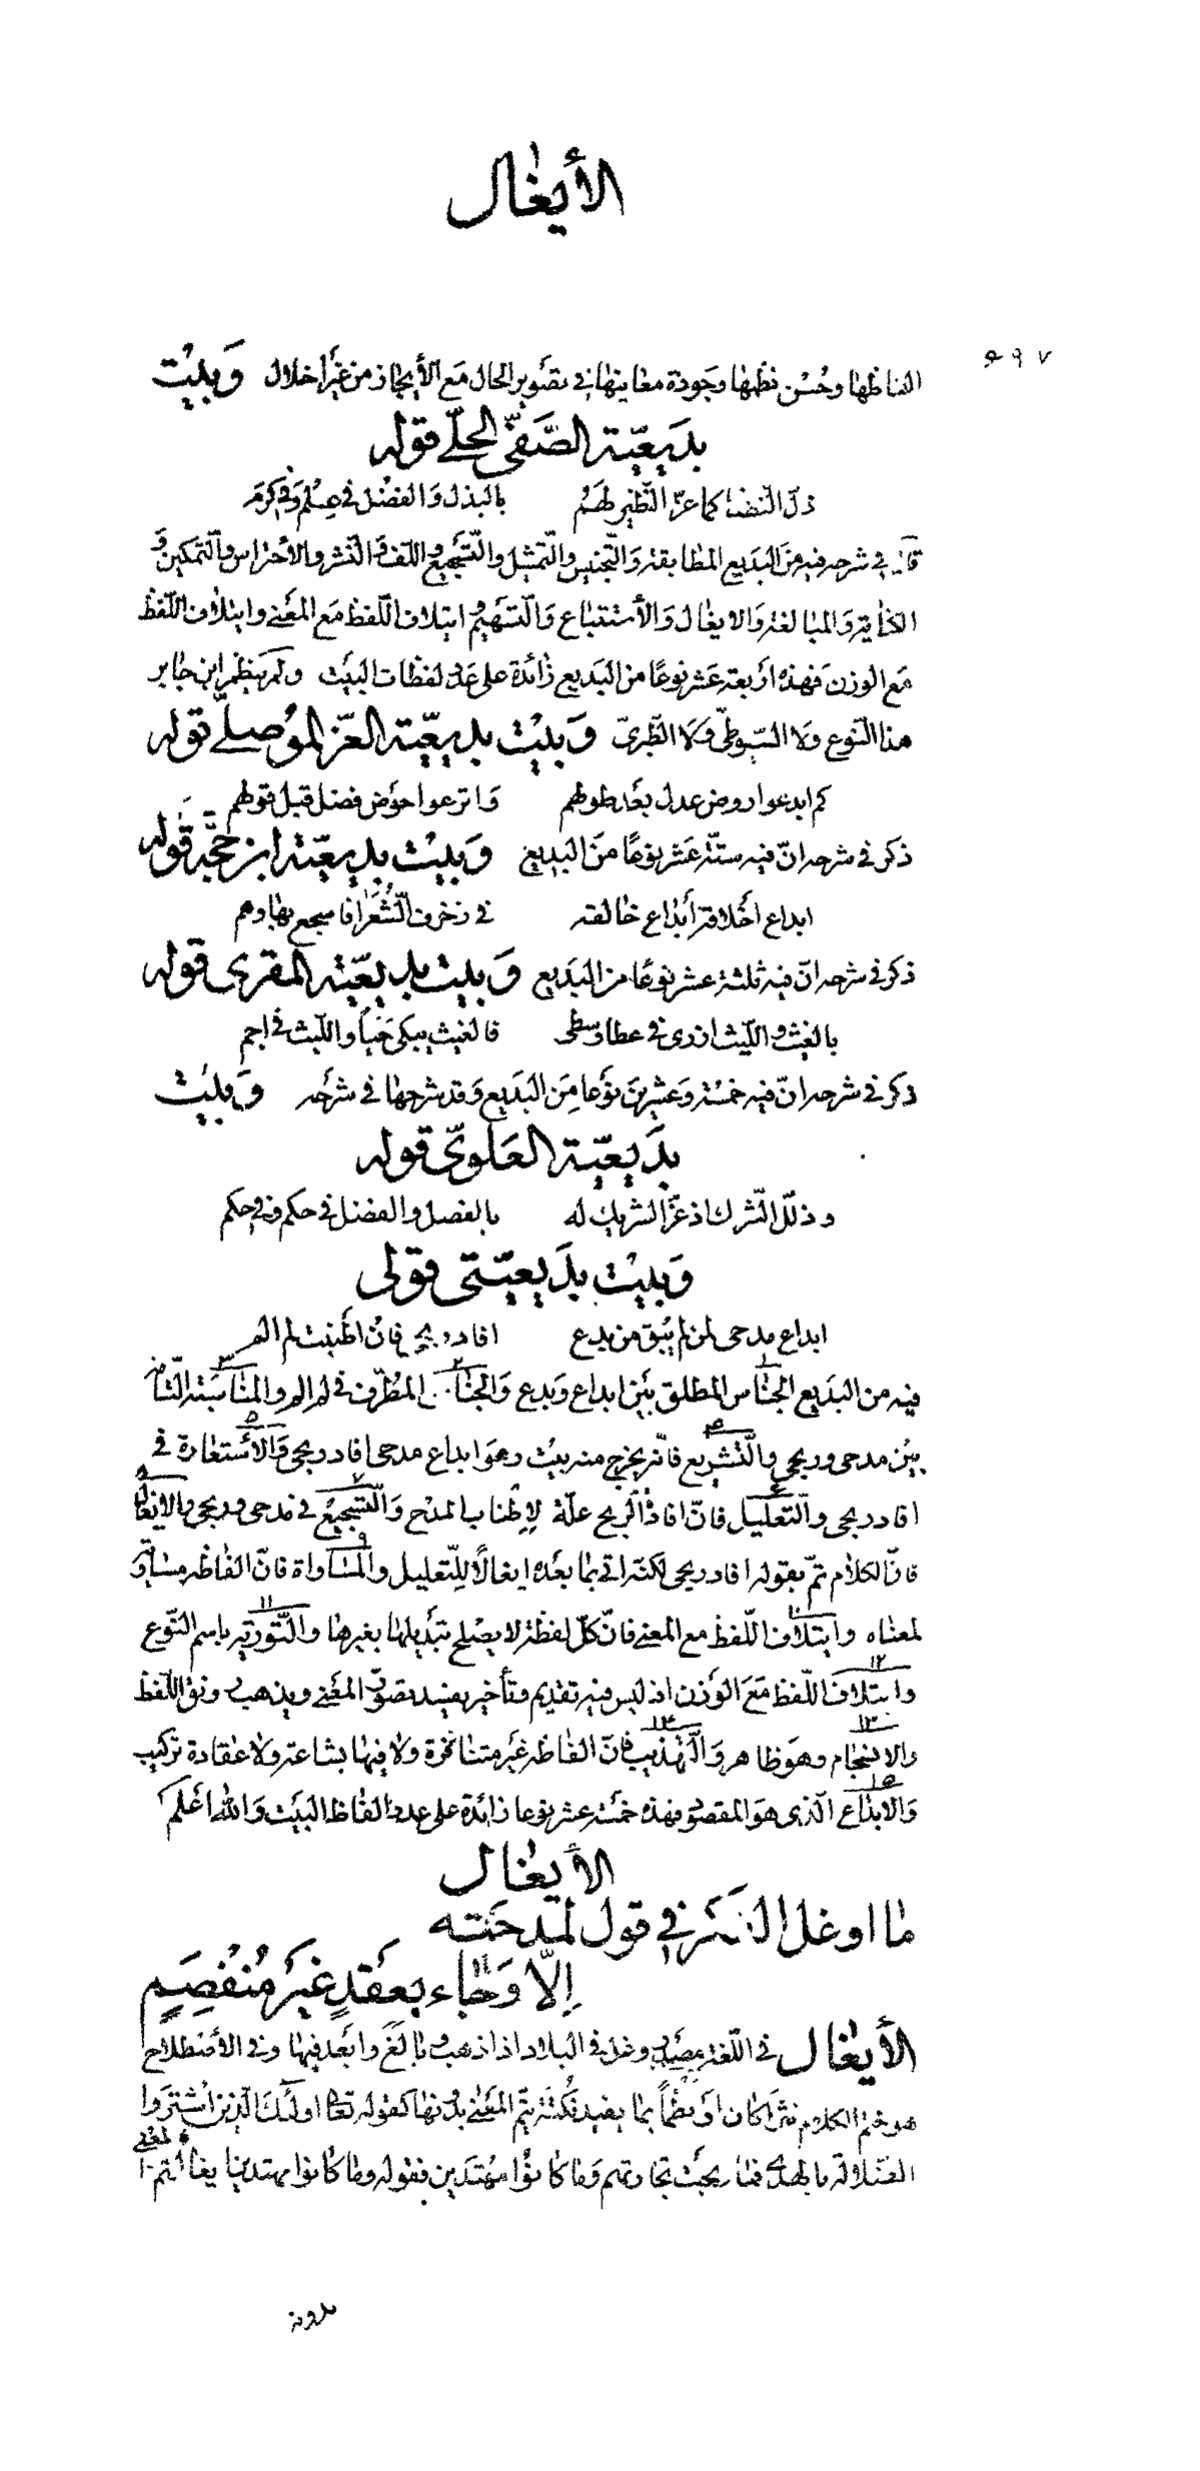 الأيغال
٥٩٧
الفاظها وحُسْن نظمها وجَودة معانيها في تصَوير الحال مَع الأيجاز من غيَر اخلال وَبيْت
بدَيعيّة الصَّفيّ الحلّي قوله
ذلّ النضار كما عزّ النّظير لهَمُ بالبذل وَالفضْل في عِلْم وَفي كرَم
قال في شرحه فيه مَنَ البَديع المطابقة وَالتّجنيس والتّمثيل والتّسَجيع واللّف وَالنّشر والأحتراس والتّمكين وَ
الكناية وَالمبالغة وَالايغال وَالأستتباع وَالتّسَهيم وايتلاف اللّفظ مَع المعَنى وايتلاف اللّفظ
مَع الوزن فهَذه أربعة عَشر نوعًا من البَديع زائدة على عَدد لفظات البيَت ولَم ينظم ابن جابر
هذا النّوع وَلا السّيوطيّ وَلا الطّبريّ وَبيْت بديعيّة العزّ الموُصليّ قوله
كم ابدعوا روض عدل بعَد طولهم وَاترعوا حوَض فضل قبل قولهم
ذكر في شرحه انّ فيه ستّة عَشر نوعًا منَ البَديع وَبيْت بديعيّة ابن حجَّة قوله
ابداع أخلاقه أبداع خالقه في زخرف الشّعَرا فا سجع بها وهم
ذكر في شرحه انّ فيه ثلثة عشر نوعًا من البَديع وَبيت بديعيّة المقري قوله
فالغيث يبكي حَياً والليث في اجم
ذكر في شرحه انّ فيه خمسَة وَعشرينَ نوَعا مِنَ البَديع وَقد شرحها في شرَحه وَبيْت
بدَيعيّة العَلويّ قوله
وذلّل الشّرك اذ عزّ الشريك له بالفصل والفضل في حكم وفي حكم
وَبيْت بدَيعيّتي قولي
ابداع مدحي لمن لم يُبق من بدع افاد ربحي فان اطَنبت لم الم
فيه من البَديع الجناس المطلق بيَن ابداع وَبدع وَالجناس المُطرّف في لم الم والمناسَبة التّامّة
بيُن مدحي وربحي والتّشريع فانّه يخرج منه بيت وهوَ ابداع مدحي افاد ربحي وَالأسَتعارة في
افاد ربحي والتّعليل فانّ افادة الرّبح علّة لِاطناب المدْح وَالتّسَجيع في مَدحي وربحي والايغال
فانّ الكلام تمّ بقوله افاد ربحي لكنّه اتى بما بعَده ايغالًا للِتّعليل والمسَاواة فانّ الفاظه مسَاوية
لمعناه وايتلاف اللّفظ مع المعنى فانّ كلّ لفظة لا يصَلح تبَديلها بغيرها والتّورية باسم النّوع
وايتلافَ اللّفظ مَعَ الوَزن اذ ليس فيه تقديم وتأخير يفيد تصَوّر المعَنى ويذهب رونق اللّفظ
والانسَجام وهوَ ظاهر وَالتّهذيب فانّ الفاظه غيَر متنافرة ولا فيها بشاعة ولا عقادة تركيب
وَالابداع الّذي هوَ المقصود فهذه خمسَة عشر نوعا زائدة على عدد الفاظ البيَت وَالله اعَلم
الأيغال
ما اوغل الفكر في قول لمدحَته
اِلّا وَجاء بعقدٍ غيَر مُنفصِمِ
الأيغال في اللّغة مصَدر وغل في البلاد اذا ذهب وبالَغَ وابَعد فيها وفي الأصَطلاح
هو ختم الكلام نثرًا كان اوَ نظماً بما يفيد نُكتة يتمّ المعَنى بدونها كقوله تعالى اولئكَ الّذين اشترَوا
الضّلالة بالهدى فما ربحَت تجارتهم وَما كانوُا مهُتدَين فقوله وما كانوا مهتدين ايغال لتمام المعنى
بدونه